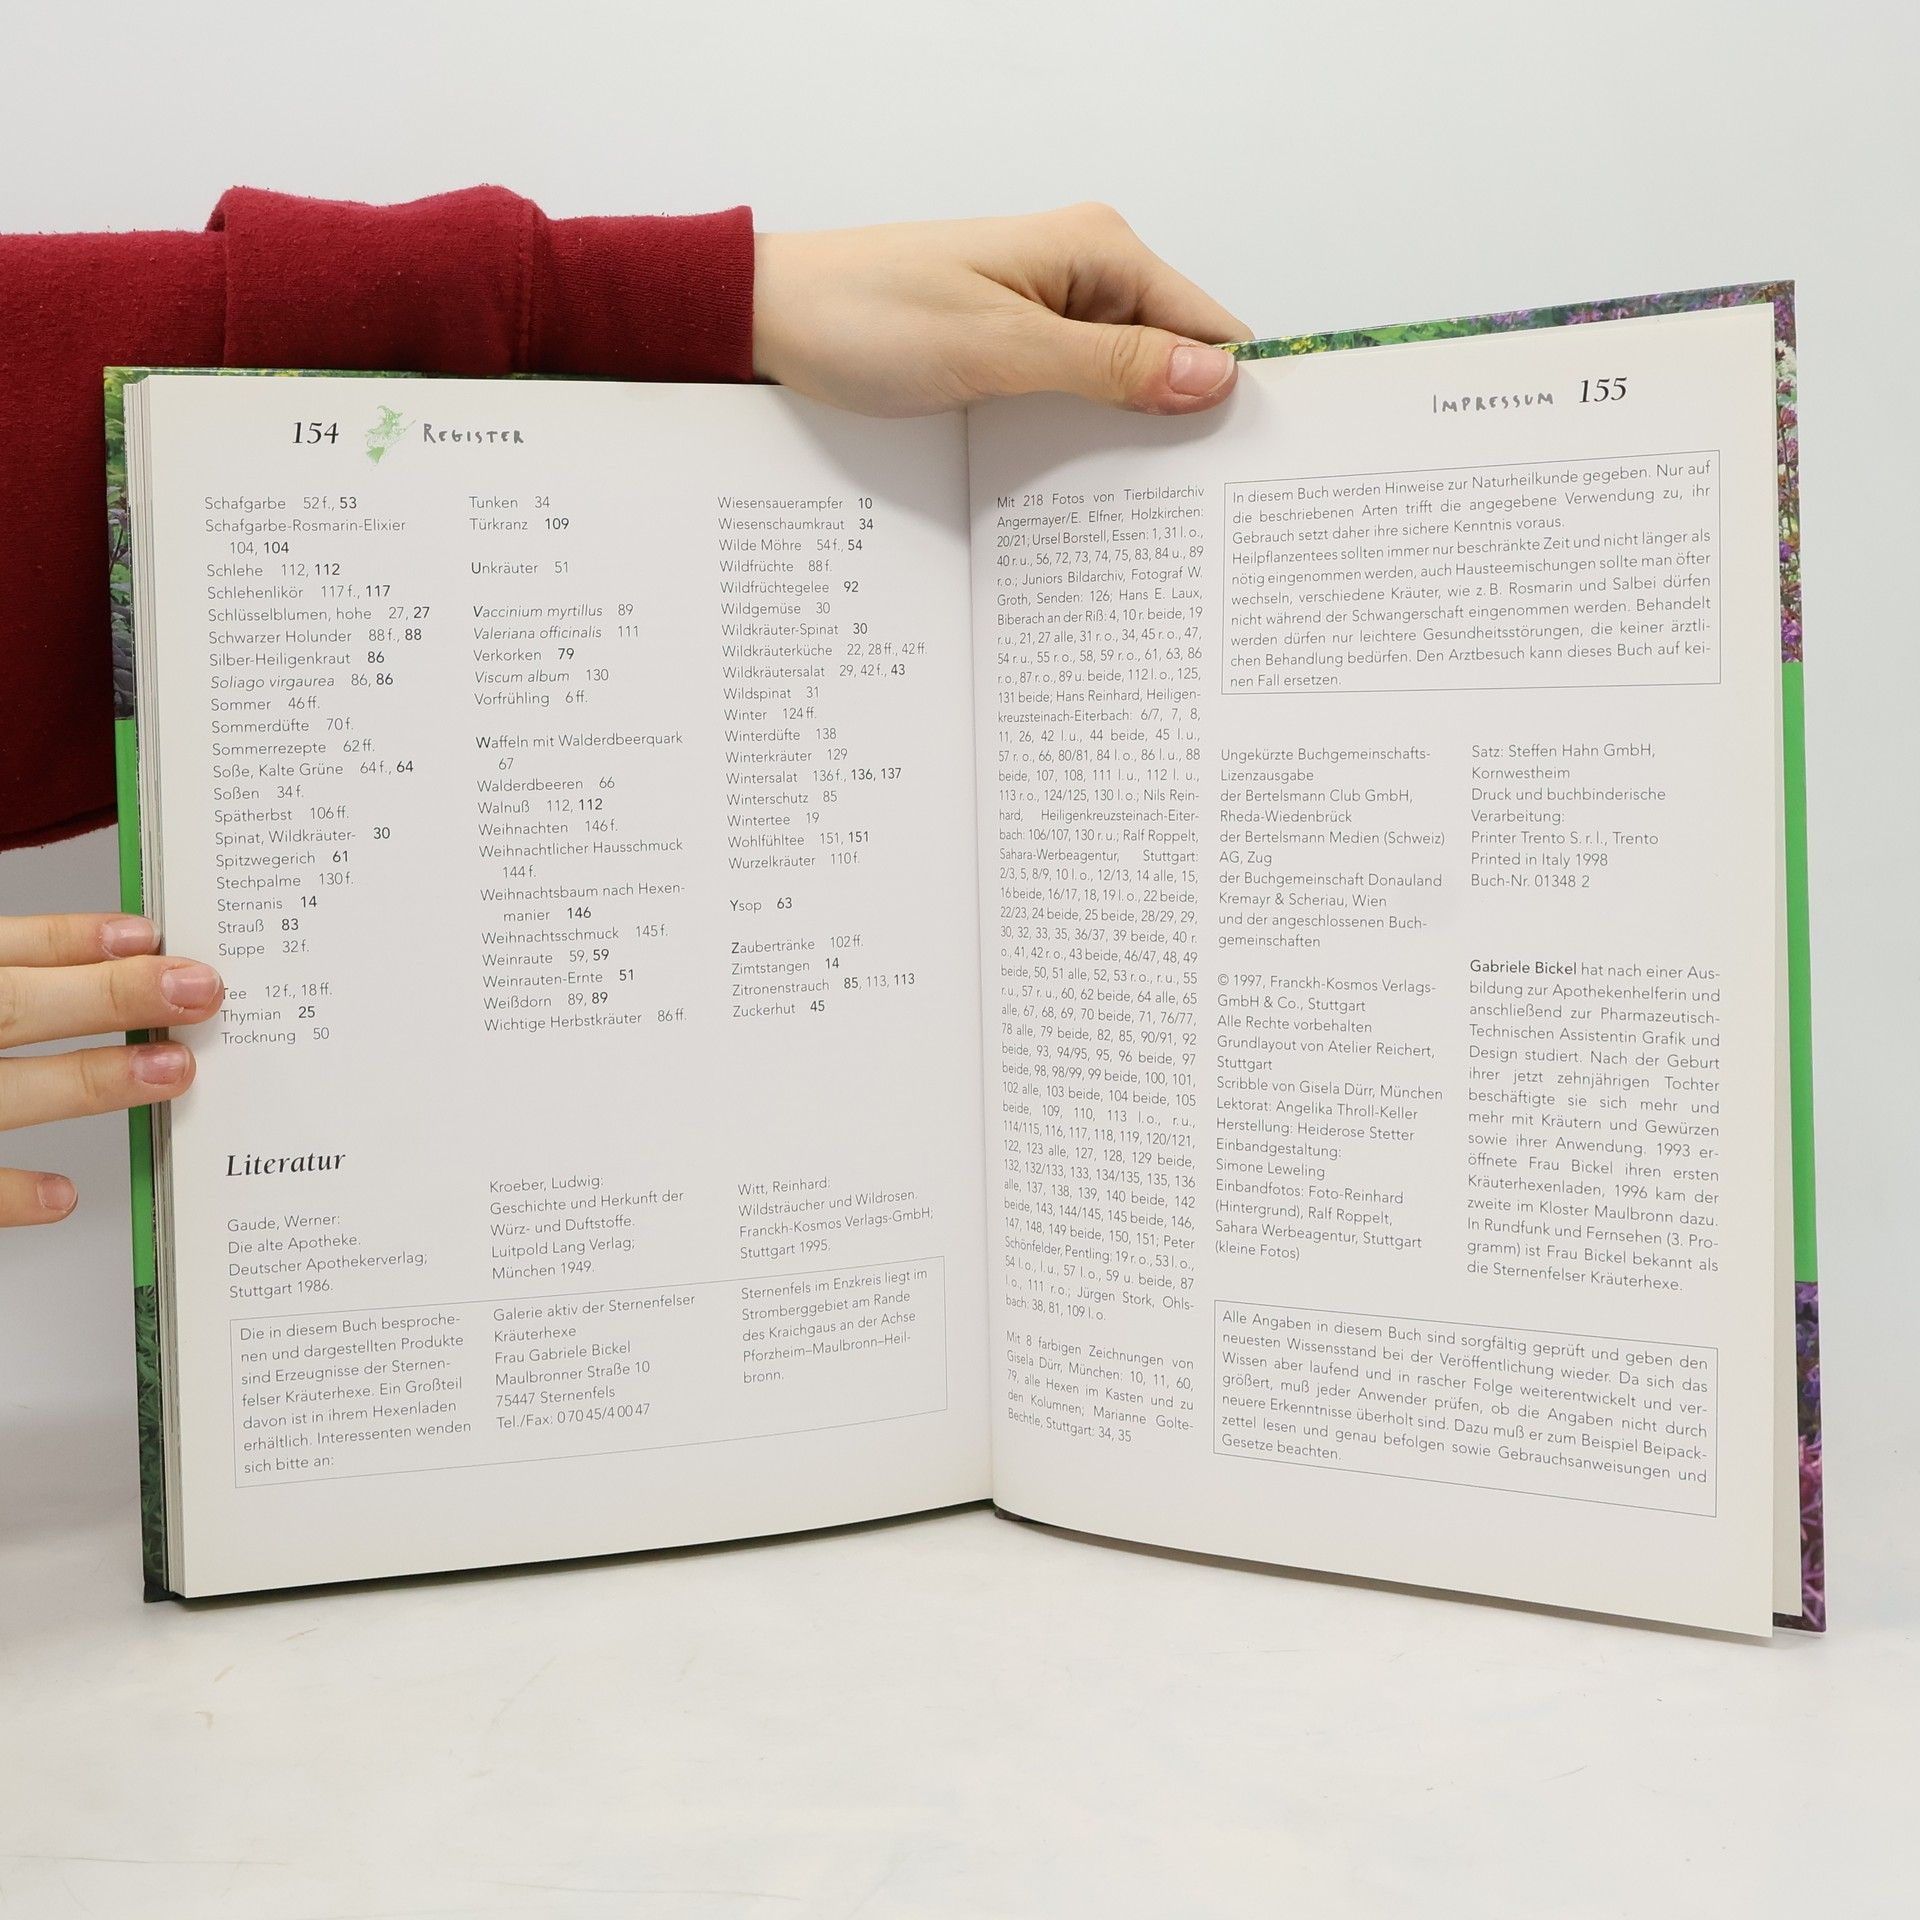 154 REGISTER
Schafgarbe 52 f., 53
Schafgarbe-Rosmarin-Elixier
104, 104
Schlehe 112, 112
Schlehenlikör 117 f., 117
Schlüsselblumen, hohe 27, 27
Schwarzer Holunder 88 f., 88
Silber-Heiligenkraut 86
Soliago virgaurea 86, 86
Sommer 46 ff.
Sommerdüfte 70 f.
Sommerrezepte 62 ff.
Soße, Kalte Grüne 64 f., 64
Soßen 34 f.
Spätherbst 106 ff.
Spinat, Wildkräuter- 30
Spitzwegerich 61
Stechpalme 130 f.
Sternanis 14
Strauß 83
Suppe 32 f.
Tee 12 f., 18 ff.
Thymian 25
Trocknung 50
Tunken 34
Türkranz 109
Unkräuter 51
Vaccinium myrtillus 89
Valeriana officinalis 111
Verkorken 79
Viscum album 130
Vorfrühling 6 ff.
Waffeln mit Walderdbeerquark
67
Walderdbeeren 66
Walnuß 112, 112
Weihnachten 146 f.
Weihnachtlicher Hausschmuck
144 f.
Weihnachtsbaum nach Hexen-
manier 146
Weihnachtsschmuck 145 f.
Weinraute 59, 59
Weinrauten-Ernte 51
Weißdorn 89, 89
Wichtige Herbstkräuter 86 ff.
Wiesensauerampfer 10
Wiesenschaumkraut 34
Wilde Möhre 54 f., 54
Wildfrüchte 88 f.
Wildfrüchtegelee 92
Wildgemüse 30
Wildkräuter-Spinat 30
Wildkräuterküche 22, 28 ff., 42 ff.
Wildkräutersalat 29, 42 f., 43
Wildspinat 31
Winter 124 ff.
Winterdüfte 138
Winterkräuter 129
Wintersalat 136 f., 136, 137
Winterschutz 85
Wintertee 19
Wohlfühltee 151, 151
Wurzelkräuter 110 f.
Ysop 63
Zaubertränke 102 ff.
Zimtstangen 14
Zitronenstrauch 85, 113, 113
Zuckerhut 45
Literatur
Gaude, Werner:
Die alte Apotheke.
Deutscher Apothekerverlag;
Stuttgart 1986.
Kroeber, Ludwig:
Geschichte und Herkunft der
Würz- und Duftstoffe.
Luitpold Lang Verlag;
München 1949.
Witt, Reinhard:
Wildsträucher und Wildrosen.
Franckh-Kosmos Verlags-GmbH;
Stuttgart 1995.
Die in diesem Buch besproche-
nen und dargestellten Produkte
sind Erzeugnisse der Sternen-
felser Kräuterhexe. Ein Großteil
davon ist in ihrem Hexenladen
erhältlich. Interessenten wenden
sich bitte an:
Galerie aktiv der Sternenfelser
Kräuterhexe
Frau Gabriele Bickel
Maulbronner Straße 10
75447 Sternenfels
Tel./Fax: 0 70 45/4 00 47
Sternenfels im Enzkreis liegt im
Stromberggebiet am Rande
des Kraichgaus an der Achse
Pforzheim–Maulbronn–Heil-
bronn.
IMPRESSUM 155
Mit 218 Fotos von Tierbildarchiv
Angermayer/E. Elfner, Holzkirchen:
20/21; Ursel Borstell, Essen: 1, 31 l. o.,
40 r. u., 56, 72, 73, 74, 75, 83, 84 u., 89
r. o.; Juniors Bildarchiv, Fotograf W.
Groth, Senden: 126; Hans E. Laux,
Biberach an der Riß: 4, 10 r. beide, 19
r. u., 21, 27 alle, 31 r. o., 34, 45 r. o., 47,
54 r. u., 55 r. o., 58, 59 r. o., 61, 63, 86
r. o., 87 r. o., 89 u. beide, 112 l. o., 125,
131 beide; Hans Reinhard, Heiligen-
kreuzsteinach-Eiterbach: 6/7, 7, 8,
11, 26, 42 l. u., 44 beide, 45 l. u.,
57 r. o., 66, 80/81, 84 l. o., 86 l. u., 88
beide, 107, 108, 111 l. u., 112 l. u.,
113 r. o., 124/125, 130 l. o.; Nils Rein-
hard, Heiligenkreuzsteinach-Eiter-
bach: 106/107, 130 r. u.; Ralf Roppelt,
Sahara-Werbeagentur, Stuttgart:
2/3, 5, 8/9, 10 l. o., 12/13, 14 alle, 15,
16 beide, 16/17, 18, 19 l. o., 22 beide,
22/23, 24 beide, 25 beide, 28/29, 29,
30, 32, 33, 35, 36/37, 39 beide, 40 r.
o., 41, 42 r. o., 43 beide, 46/47, 48, 49
beide, 50, 51 alle, 52, 53 r. o., r. u., 55
r. u., 57 r. u., 60, 62 beide, 64 alle, 65
alle, 67, 68, 69, 70 beide, 71, 76/77,
78 alle, 79 beide, 82, 85, 90/91, 92
beide, 93, 94/95, 95, 96 beide, 97
beide, 98, 98/99, 99 beide, 100, 101,
102 alle, 103 beide, 104 beide, 105
beide, 109, 110, 113 l. o., r. u.,
114/115, 116, 117, 118, 119, 120/121,
122, 123 alle, 127, 128, 129 beide,
132, 132/133, 133, 134/135, 135, 136
alle, 137, 138, 139, 140 beide, 142
beide, 143, 144/145, 145 beide, 146,
147, 148, 149 beide, 150, 151; Peter
Schönfelder, Pentling: 19 r. o., 53 l. o.,
54 l. o., l. u., 57 l. o., 59 u. beide, 87
l. o., 111 r. o.; Jürgen Stork, Ohls-
bach: 38, 81, 109 l. o.
Mit 8 farbigen Zeichnungen von
Gisela Dürr, München: 10, 11, 60,
79, alle Hexen im Kasten und zu
den Kolumnen; Marianne Golte-
Bechtle, Stuttgart: 34, 35
In diesem Buch werden Hinweise zur Naturheilkunde gegeben. Nur auf
die beschriebenen Arten trifft die angegebene Verwendung zu, ihr
Gebrauch setzt daher ihre sichere Kenntnis voraus.
Heilpflanzentees sollten immer nur beschränkte Zeit und nicht länger als
nötig eingenommen werden, auch Hausteemischungen sollte man öfter
wechseln, verschiedene Kräuter, wie z. B. Rosmarin und Salbei dürfen
nicht während der Schwangerschaft eingenommen werden. Behandelt
werden dürfen nur leichtere Gesundheitsstörungen, die keiner ärztli-
chen Behandlung bedürfen. Den Arztbesuch kann dieses Buch auf kei-
nen Fall ersetzen.
Ungekürzte Buchgemeinschafts-
Lizenzausgabe
der Bertelsmann Club GmbH,
Rheda-Wiedenbrück
der Bertelsmann Medien (Schweiz)
AG, Zug
der Buchgemeinschaft Donauland
Kremayr & Scheriau, Wien
und der angeschlossenen Buch-
gemeinschaften
© 1997, Franckh-Kosmos Verlags-
GmbH & Co., Stuttgart
Alle Rechte vorbehalten
Grundlayout von Atelier Reichert,
Stuttgart
Scribble von Gisela Dürr, München
Lektorat: Angelika Throll-Keller
Herstellung: Heiderose Stetter
Einbandgestaltung:
Simone Leweling
Einbandfotos: Foto-Reinhard
(Hintergrund), Ralf Roppelt,
Sahara Werbeagentur, Stuttgart
(kleine Fotos)
Satz: Steffen Hahn GmbH,
Kornwestheim
Druck und buchbinderische
Verarbeitung:
Printer Trento S. r. l., Trento
Printed in Italy 1998
Buch-Nr. 01348 2
Gabriele Bickel hat nach einer Aus-
bildung zur Apothekenhelferin und
anschließend zur Pharmazeutisch-
Technischen Assistentin Grafik und
Design studiert. Nach der Geburt
ihrer jetzt zehnjährigen Tochter
beschäftigte sie sich mehr und
mehr mit Kräutern und Gewürzen
sowie ihrer Anwendung. 1993 er-
öffnete Frau Bickel ihren ersten
Kräuterhexenladen, 1996 kam der
zweite im Kloster Maulbronn dazu.
In Rundfunk und Fernsehen (3. Pro-
gramm) ist Frau Bickel bekannt als
die Sternenfelser Kräuterhexe.
Alle Angaben in diesem Buch sind sorgfältig geprüft und geben den
neuesten Wissensstand bei der Veröffentlichung wieder. Da sich das
Wissen aber laufend und in rascher Folge weiterentwickelt und ver-
größert, muß jeder Anwender prüfen, ob die Angaben nicht durch
neuere Erkenntnisse überholt sind. Dazu muß er zum Beispiel Beipack-
zettel lesen und genau befolgen sowie Gebrauchsanweisungen und
Gesetze beachten.